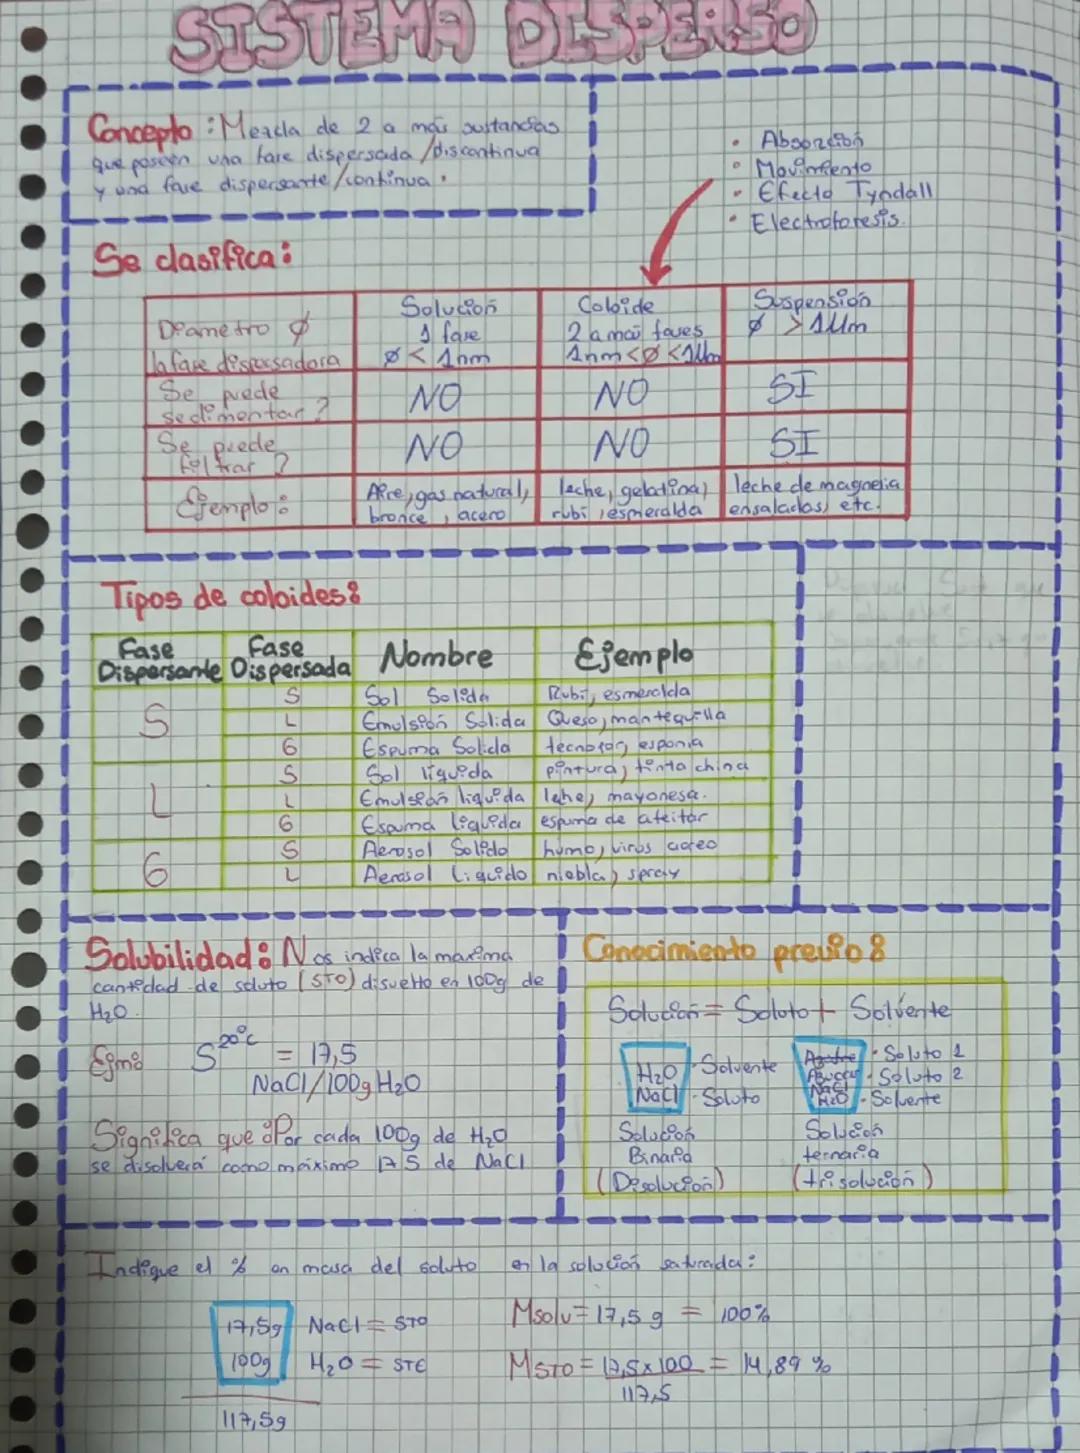 SISTEMA DISPERSO
Concepto: Mezcla de 2 a más sustancias
que poseen una fase dispersada/discontinua
y una fase dispersante/continua.
• Absorción
• Movimiento
• Efecto Tyndall
• Electroforesis.
Se clasifica:
Diametro ∅
la fase dispersadora
Solución
1 fase
∅ < 1nm
Coloide
2 a más fases
1nm<∅<1Um
Suspensión
∅ > 1Um
Se puede
sedimentar?
NO
NO
SI
Se puede
filtrar?
NO
NO
SI
Ejemplo:
Aire, gas natural,
bronce, acero
leche, gelatina,
rubí, esmeralda
leche de magnesia
ensaladas, etc.
Tipos de coloides:
Fase
Dispersante
Fase
Dispersada
Nombre
Ejemplo
S
S Sol Solida Rubí, esmeralda
L Emulsión Solida Queso, mantequilla
G Espuma Solida tecnopor, esponja
L
S Sol líquida pintura, tinta china
L Emulsión líquida leche, mayonesa.
G Espuma líquida espuma de afeitar
G
S Aerosol Solido humo, virus aereo
L Aerosol Líquido niebla, spray
Solubilidad: Nos indica la maxima
cantidad de soluto (STO) disuelto en 100g de
H₂O.
Ejm:
S 20°C = 17,5
NaCl/100g H₂O
Significa que: Por cada 100g de H₂O
se disolverá como máximo 17,5 de NaCl
Conocimiento previo:
Solución = Soluto + Solvente
H₂O - Solvente
NaCl - Soluto
Solución
Binaria
(Disolución)
Azucar - Soluto 1
NaCl - Soluto 2
H₂O - Solvente
Solución
ternaria
(trisolución)
Indique el % en masa del soluto en la solución saturada:
17,5g NaCl = STO
100g H₂O = STE
117,5g
Msolu = 17,5 g = 100%
MSTO = 17,5x100 = 14,89 %
117,5